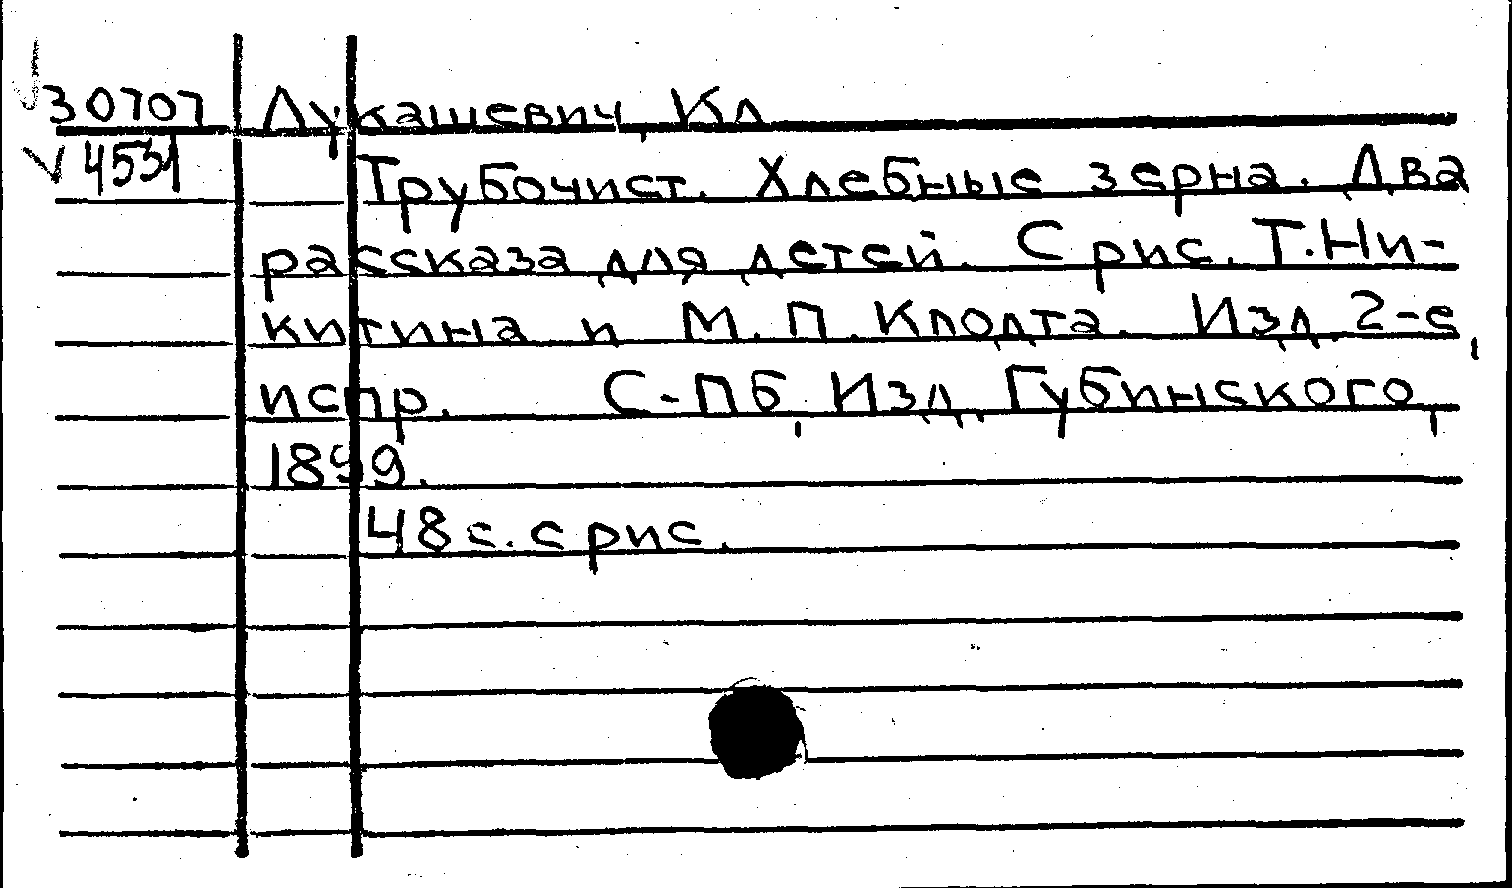 30707 Лукашевич, Кл
4531 Трубочист. Хлебные зерна. Два
рассказа для детей. С рис. Т. Ни-
китина и М. П. Клодта. Изд. 2-е,
испр. С-Пб, Изд. Губинского,
1899.
48 с. с рис.